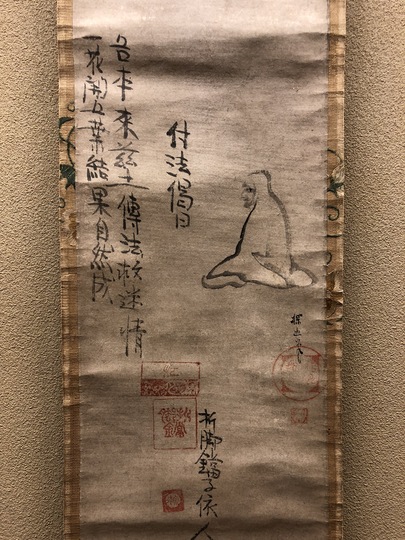 付法偈曰
吾本来茲土傳法救迷情
一花開五葉結果自然成
折脚鐺子依人
探幽筆